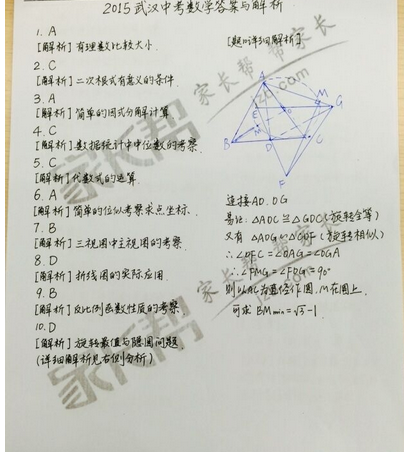 2015武汉中考数学答案与解析
1. A
[解析] 有理数比较大小.
2. C
[解析] 二次根式有意义的条件.
3. A
[解析] 简单的因式分解计算.
4. C
[解析] 数据统计中中位数的考察.
5. C
[解析] 代数式的运算.
6. A
[解析] 简单的位似考察求点坐标.
7. B
[解析] 三视图中主视图的考察.
8. D
[解析] 折线图的实际应用.
9. B
[解析] 反比例函数性质的考察.
10. D
[解析] 旋转最值与隐圆问题.
(详细解析见右侧分析)
[题10详细解析]
A
E
M
G
B
D
C
F
连接AD.DG
易证:△ADC≌△GDC(旋转全等)
又有 △ADG∽△CDF(旋转相似)
∴∠DFC=∠DAG=∠DGA
∴∠FMG=∠FDG=90°
则以AC为直径作圆.M在圆上.
可求 BMmin=√3-1.
家长帮
家长帮
jzb.com